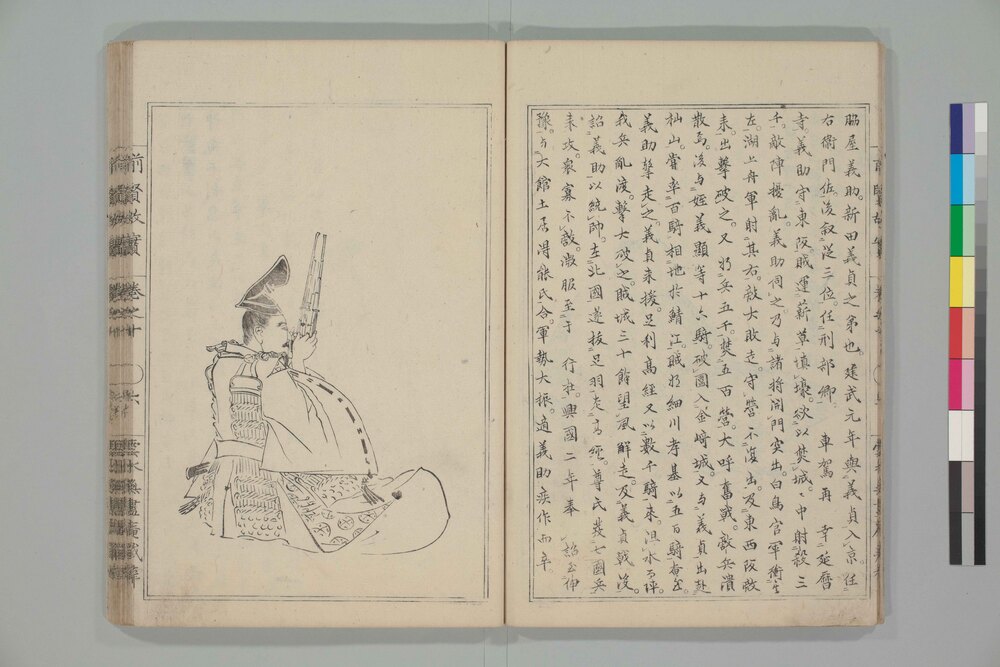 脇屋義助。新田義貞之弟也。建武元年與義貞入京。任
右衛門佐。後叙從三位。任刑部卿。 車駕再 幸延暦
寺。義助守東阪。賊運薪草填壕。欲以焚城。城中射殺三
千。敵陣擾亂。義助伺之。乃与諸將開門突出。白鳥官軍衝其
左。湖上舟軍射其右。敵大敗走。守營不復出。及東西阪敵
来。出撃破之。又将兵五千。焚五百營。大呼奮戰。敵兵潰
散焉。後与姪義顯等十六騎。破圍入金崎城。又与義貞出赴
杣山。嘗率百騎。相地於鯖江。賊将細川孝基以五百騎
義助撃走之。義貞来援。足利高經又以數千騎来。阻水
我兵亂渡。撃大破之。賊城三十餘望風解走。及義貞戰沒。
詔義助以統帥。在北國遂抜足羽。走高經。尊氏發七國兵
来攻。衆寡不敵。微服至于 行在。興國二年奉 詔至伊
豫。与大館土居得能氏合軍。勢大振。適義助疾作而卒。
前賢故實 巻